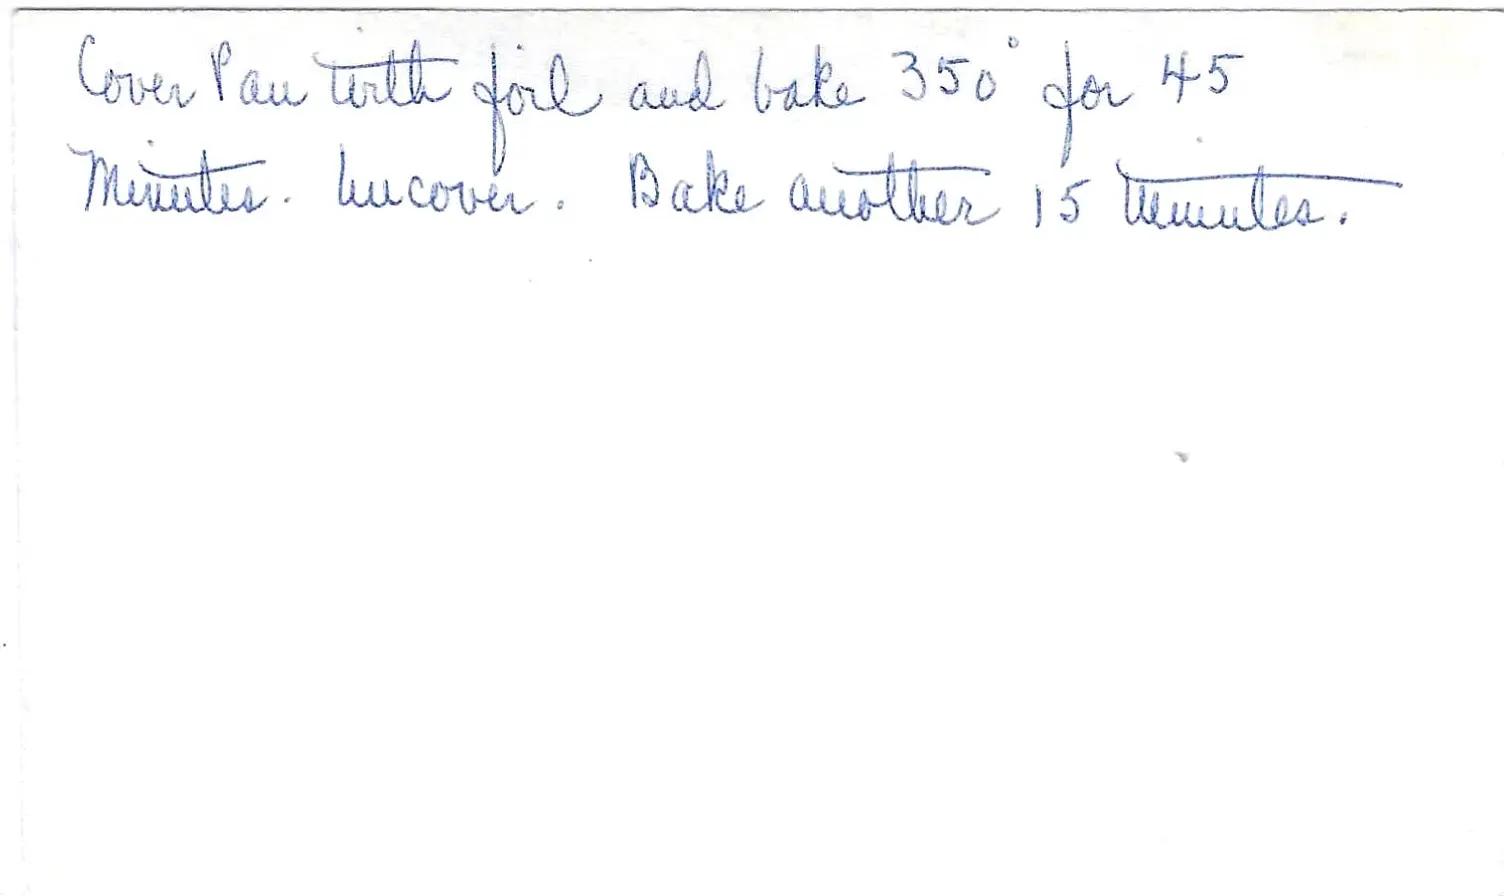 Cover Pan with foil and bake 350° for 45
Minutes. Uncover. Bake another 15 minutes.